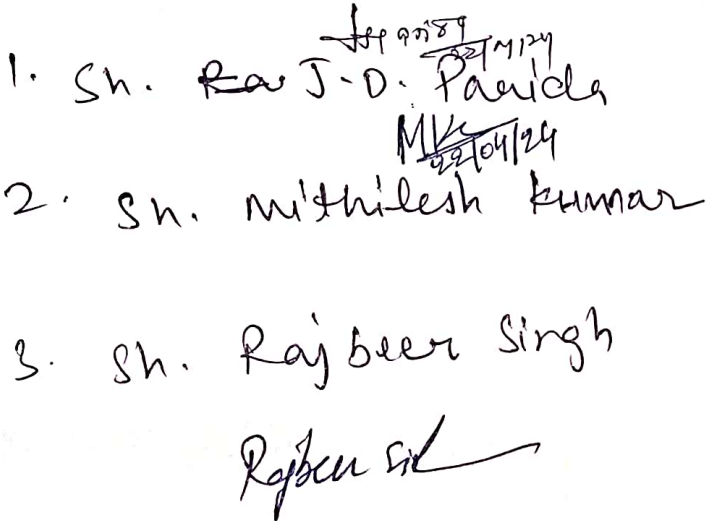 22/4/24
1. Sh. J.D. Parida
MK
22/04/24
2. Sh. Mithilesh Kumar
3. Sh. Rajbeer Singh
Rajbeer